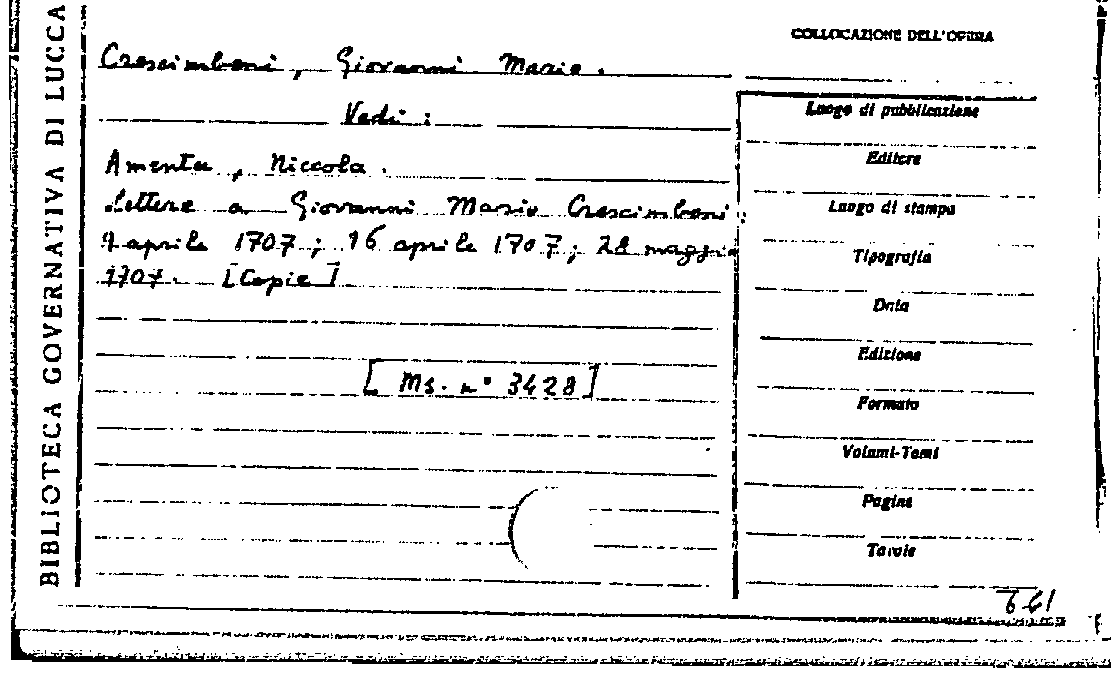 BIBLIOTECA GOVERNATIVA DI LUCCA
COLLOCAZIONE DELL'OPERA
Crescimbeni, Giovanni Mario.
Vedi:
Amenta, Niccola.
Lettere a Giovanni Mario Crescimbeni:
9 aprile 1707; 16 aprile 1707; 28 maggio
1707. [Copie]
[Ms. n° 3428]
Luogo di pubblicazione
Editore
Luogo di stampa
Tipografia
Data
Edizione
Formato
Volumi-Tomi
Pagine
Tavole